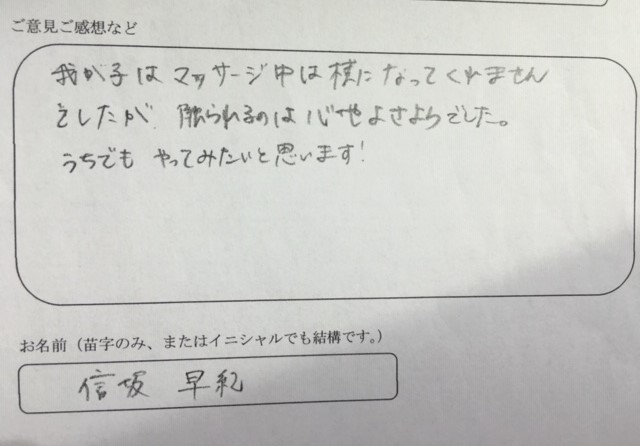 ご意見ご感想など
我が子は マッサージ中は横になってくれません
でしたが、触られるのは心地よさようでした。
うちでも やってみたいと思います!
お名前（苗字のみ、またはイニシャルでも結構です。）
信坂 早紀